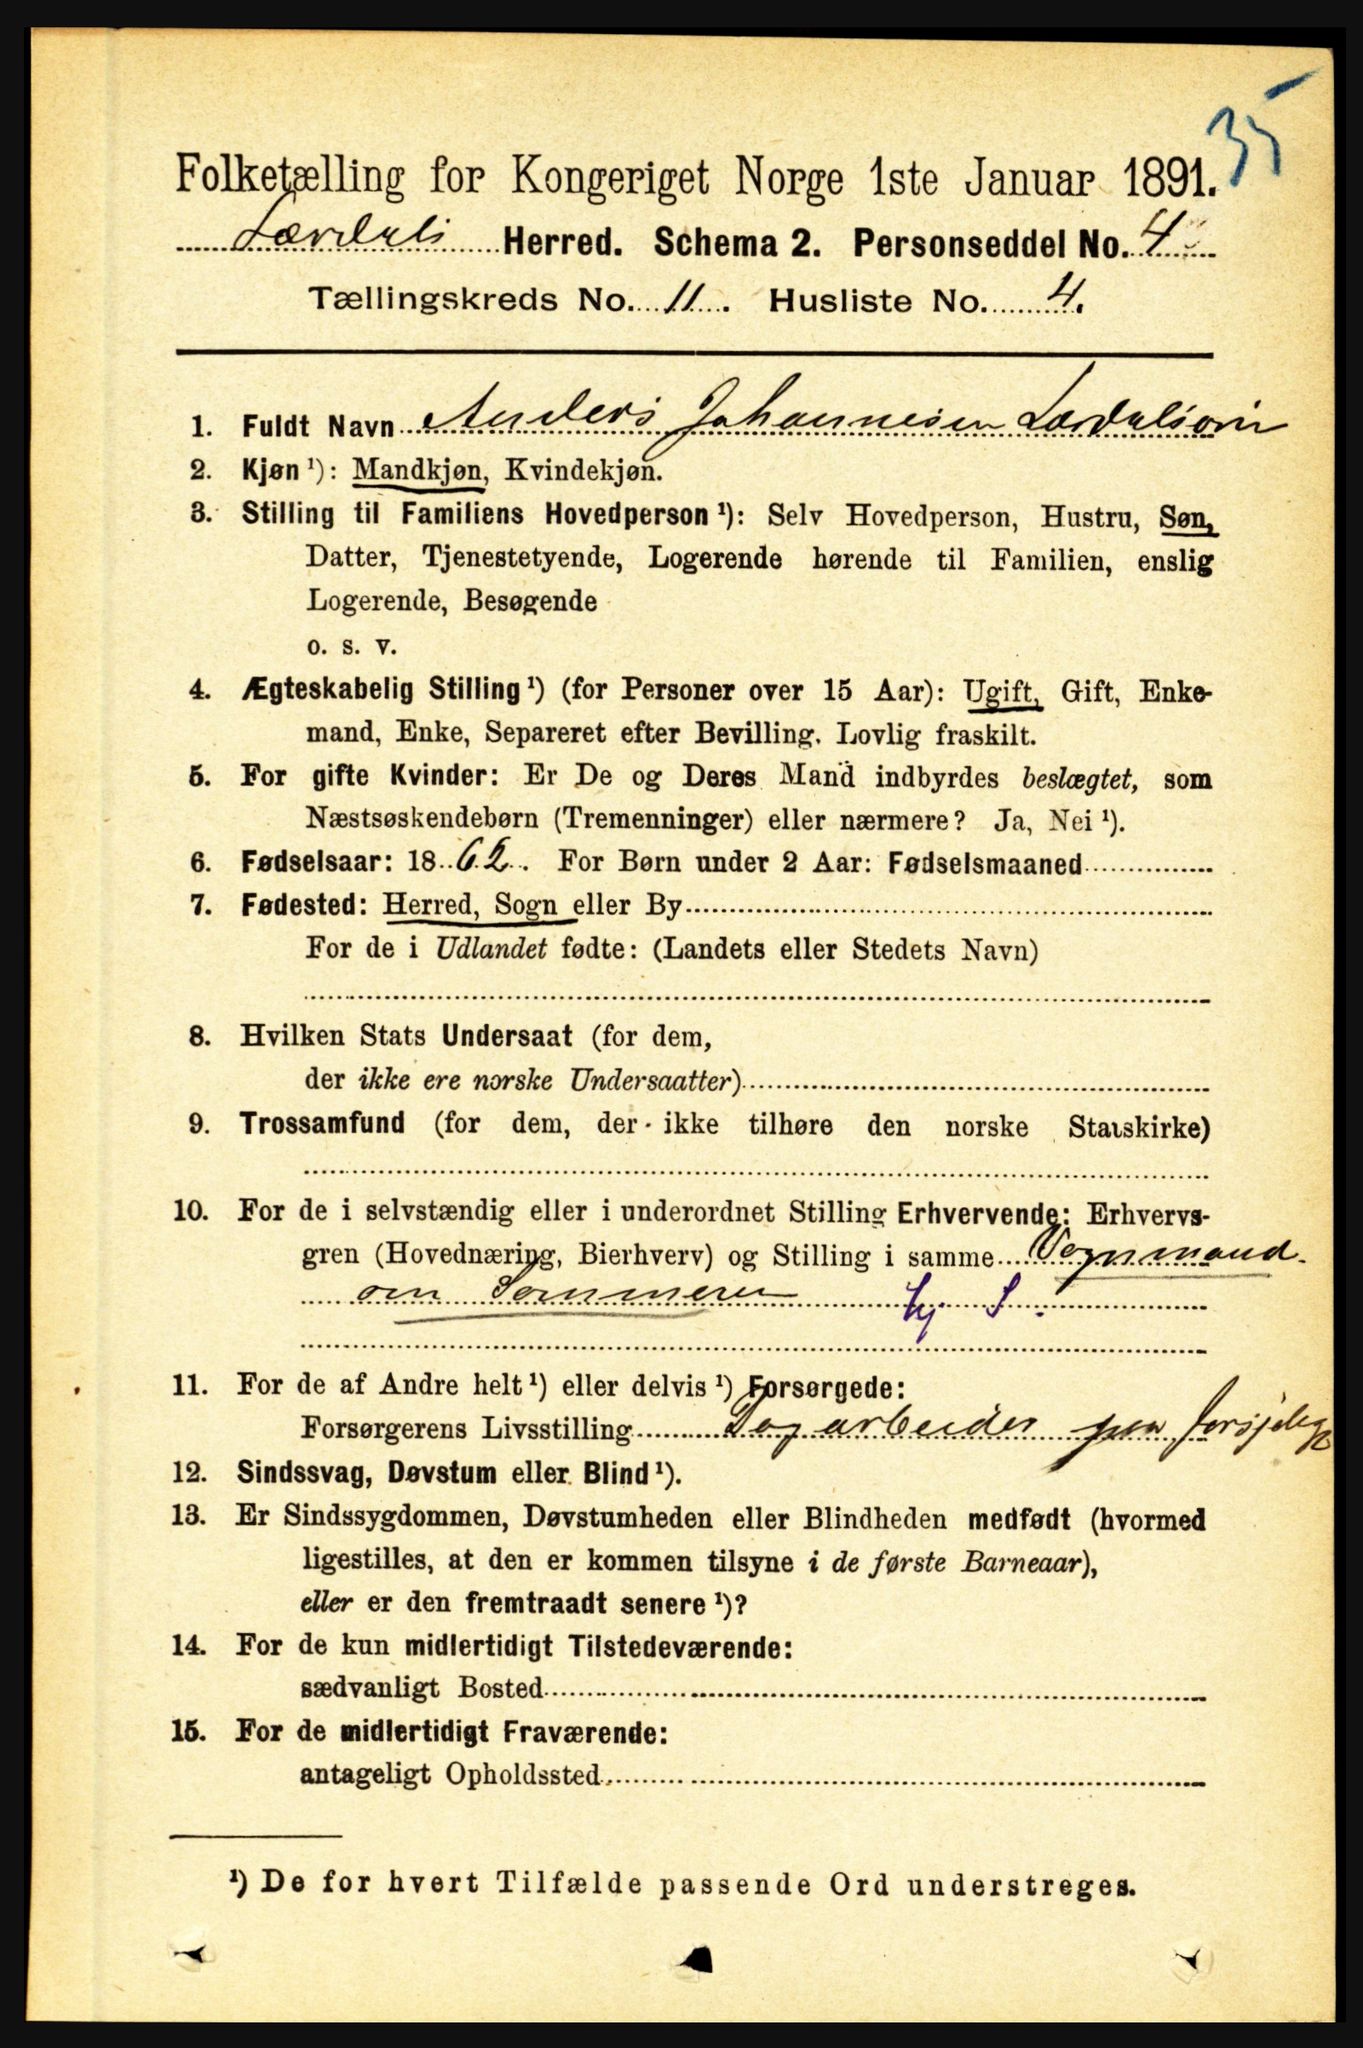 35
Folketælling for Kongeriget Norge 1ste Januar 1891.
Lærdals Herred. Schema 2. Personseddel No. 4
Tællingskreds No. 11. Husliste No. 4.
1. Fuldt Navn Anders Johannesen Lærdalsøri
2. Kjøn ¹): Mandkjøn, Kvindekjøn.
3. Stilling til Familiens Hovedperson ¹): Selv Hovedperson, Hustru, Søn,
Datter, Tjenestetyende, Logerende hørende til Familien, enslig
Logerende, Besøgende
o. s. v.
4. Ægteskabelig Stilling ¹) (for Personer over 15 Aar): Ugift, Gift, Enke-
mand, Enke, Separeret efter Bevilling. Lovlig fraskilt.
5. For gifte Kvinder: Er De og Deres Mand indbyrdes beslægtet, som
Næstsøskendebørn (Tremenninger) eller nærmere? Ja, Nei ¹).
6. Fødselsaar: 1862. For Børn under 2 Aar: Fødselsmaaned
7. Fødested: Herred, Sogn eller By
For de i Udlandet fødte: (Landets eller Stedets Navn)
8. Hvilken Stats Undersaat (for dem,
der ikke ere norske Undersaatter)
9. Trossamfund (for dem, der ikke tilhøre den norske Statskirke)
10. For de i selvstændig eller i underordnet Stilling Erhvervende: Erhvervs-
gren (Hovednæring, Bierhverv) og Stilling i samme Vognmand
om Sommeren
11. For de af Andre helt ¹) eller delvis ¹) Forsørgede:
Forsørgerens Livsstilling Dagarbeider paa
12. Sindssvag, Døvstum eller Blind ¹).
13. Er Sindssygdommen, Døvstumheden eller Blindheden medfødt (hvormed
ligestilles, at den er kommen tilsyne i de første Barneaar),
eller er den fremtraadt senere ¹)?
14. For de kun midlertidigt Tilstedeværende:
sædvanligt Bosted
15. For de midlertidigt Fraværende:
antageligt Opholdssted
¹) De for hvert Tilfælde passende Ord understreges.